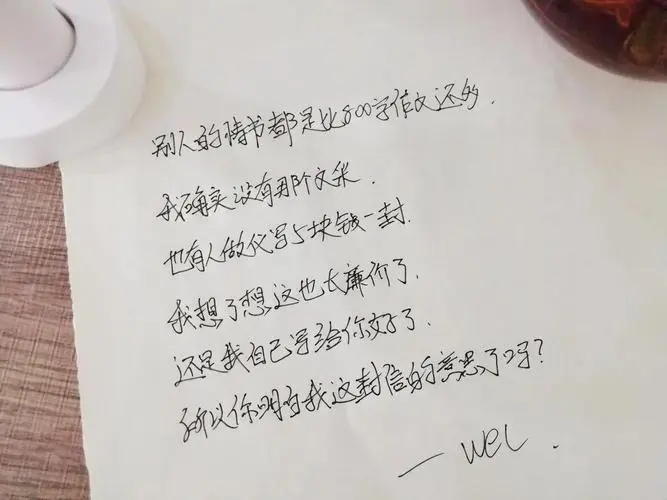 别人的情书都是比800字作文还多.
我确实没有那个文采.
也有人做代写5块钱一封.
我想了想这也太廉价了.
还是我自己写给你好了.
所以你明白我这封信的意思了吗?
— wel .